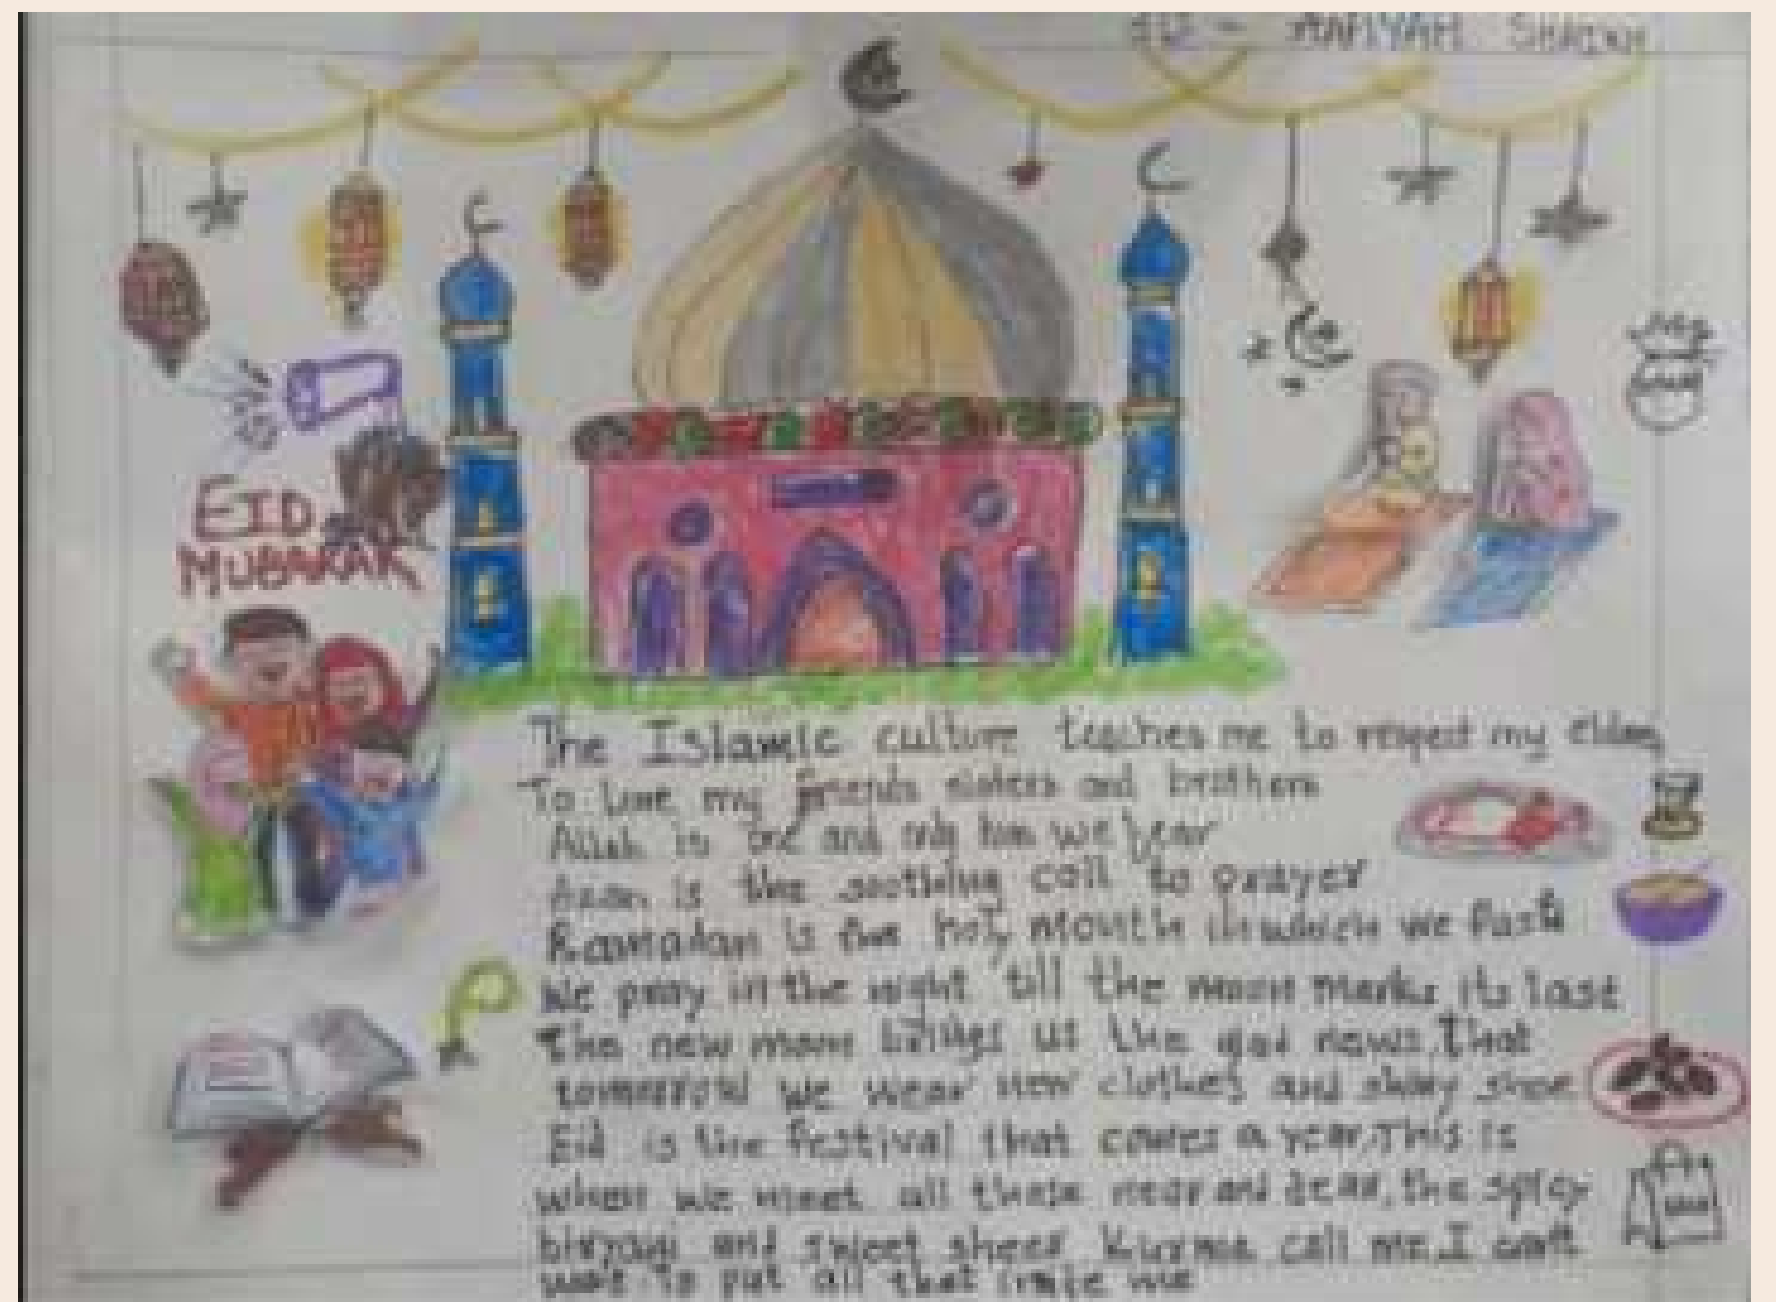 SHAIKH
EID
MUBARAK
The Islamic culture teaches me to respect my elders
To love my friends sisters and brothers
Allah is one and only him we fear
Azan is the soothing call to prayer
Ramadan is the holy month in which we fast
We pray in the night till the moon marks its last
The new moon brings us the glad news. That
tomorrow we wear new clothes and shiny shoe
Eid is the festival that comes a year. This is
when we meet all those near and dear, the spicy
biryani and sweet sheer kurma call me. I can't
wait to put all that inside me